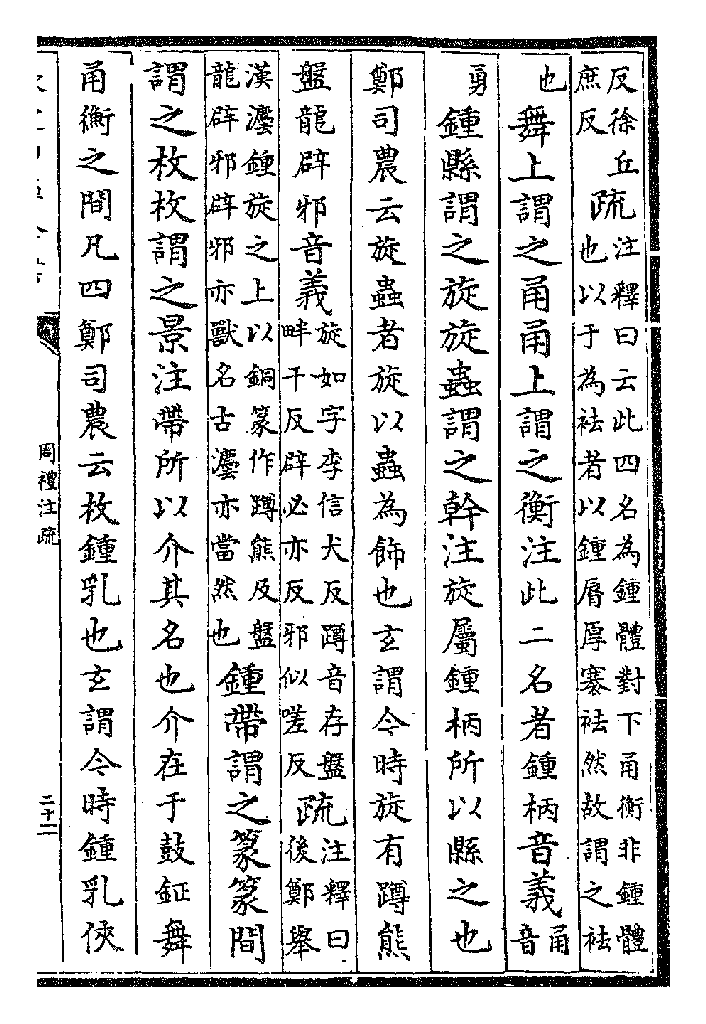 反徐丘
庶反
疏
注釋曰云此四名為鍾體對下甬衡非鍾體
也以于為袪者以鍾脣厚褰袪然故謂之袪
也
舞上謂之甬甬上謂之衡注此二名者鍾柄音義
甬
音
勇
鍾縣謂之旋旋蟲謂之幹注旋屬鍾柄所以縣之也
鄭司農云旋蟲者旋以蟲為飾也玄謂今時旋有蹲熊
盤龍辟邪音義
旋如字李信犬反蹲音存盤
畔干反辟必亦反邪似嗟反
疏
注釋曰
後鄭舉
漢灋鍾旋之上以銅篆作蹲熊及盤
龍辟邪辟邪亦獸名古灋亦當然也
鍾帶謂之篆篆間
謂之枚枚謂之景注帶所以介其名也介在于鼓鉦舞
甬衡之間凡四鄭司農云枚鍾乳也玄謂今時鍾乳俠
周禮注疏
二十二